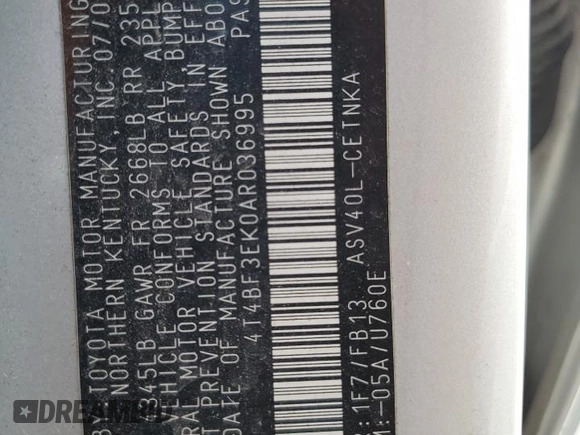 TOYOTA MOTOR MANUFACTURING
NORTHERN KENTUCKY, INC. 07/0
45LB GAWR FR 2668LB RR 235
EHICLE CONFORMS TO ALL APPL
RAL MOTOR VEHICLE SAFETY, BUMP
T PREVENTION STANDARDS IN EFF
DATE OF MANUFACTURE SHOWN ABO
4T4BF3EK0AR036995 PAS
:1F7/FB13 ASV40L-CETNKA
M:-05A/0760E
DREAMBID